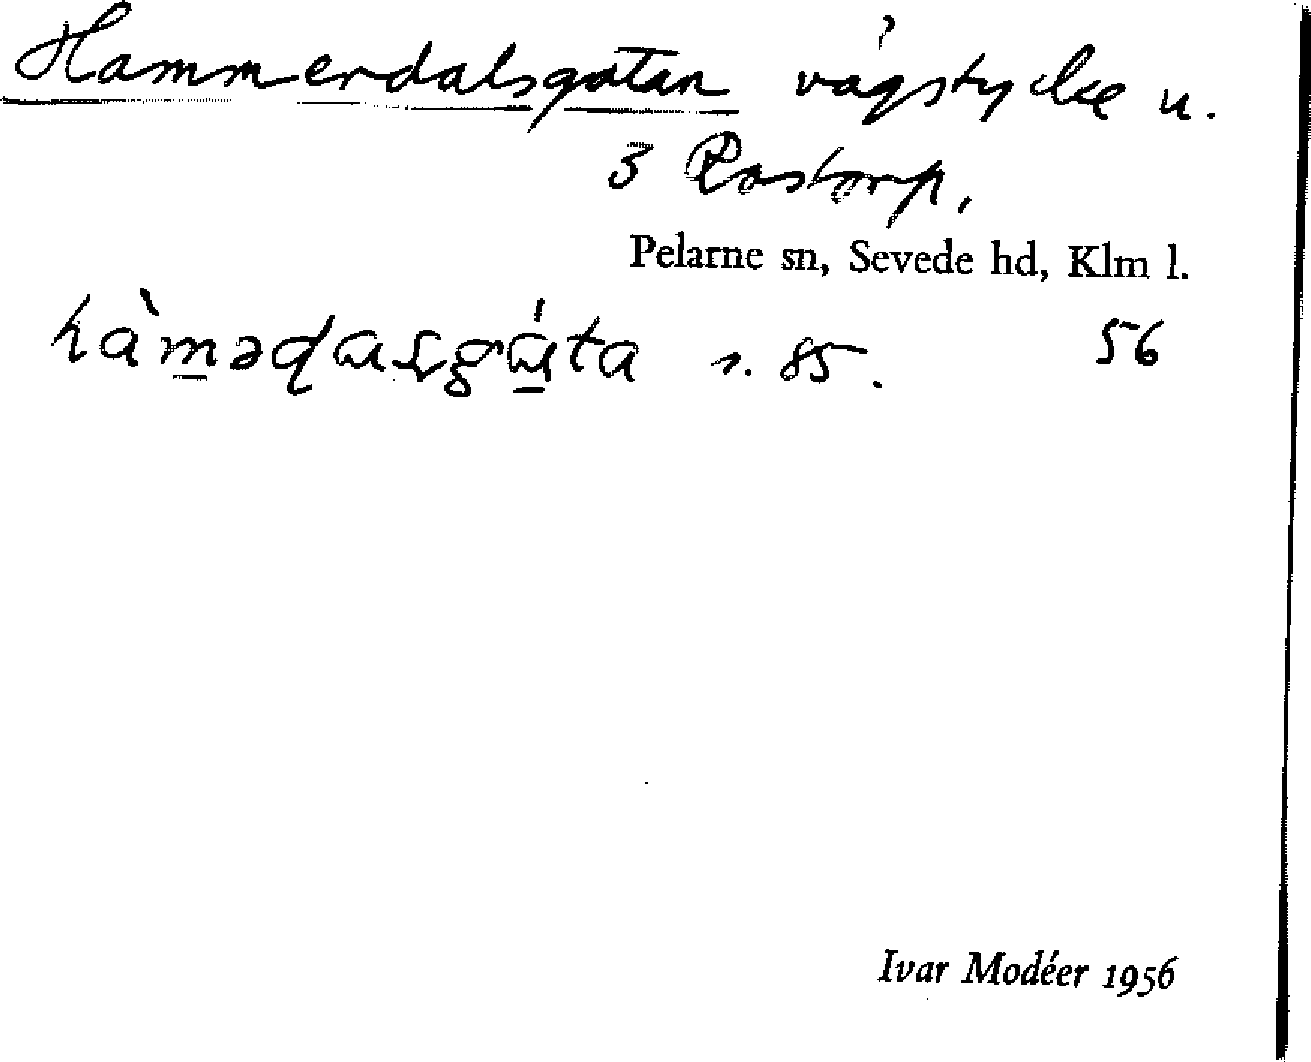 Hammerdalsgatan vägstycke u.
3 Rostorp,
Pelarne sn, Sevede hd, Klm l.
s. 85. 56
Ivar Modéer 1956